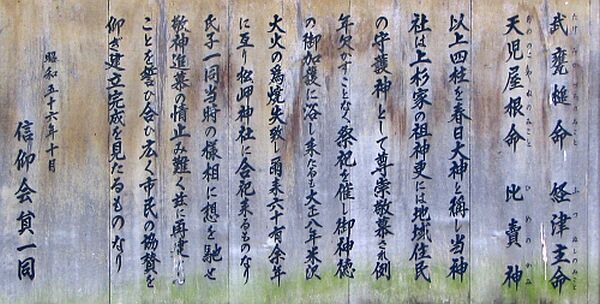 武甕槌命　経津主命
たけみかづちのみこと　ふつぬしのみこと
天児屋根命　比売神
あめのこやねのみこと　ひめのかみ
以上四柱を春日大神と称し当神
社は上杉家の祖神更には地域住民
の守護神として尊崇敬慕され例
年欠かすことなく祭祀を催し御神徳
の御加護に浴し来たるも大正八年米沢
大火の為焼失致し爾来六十有余年
に亙り松岬神社に合祀来るものなり
氏子一同当時の様相に想を馳せ
敬神追慕の情止み難く玆に再建し
ことを誓ひ合ひ広く市民の協賛を
仰ぎ建立完成を見たるものなり
昭和五十六年十月
信仰会員一同